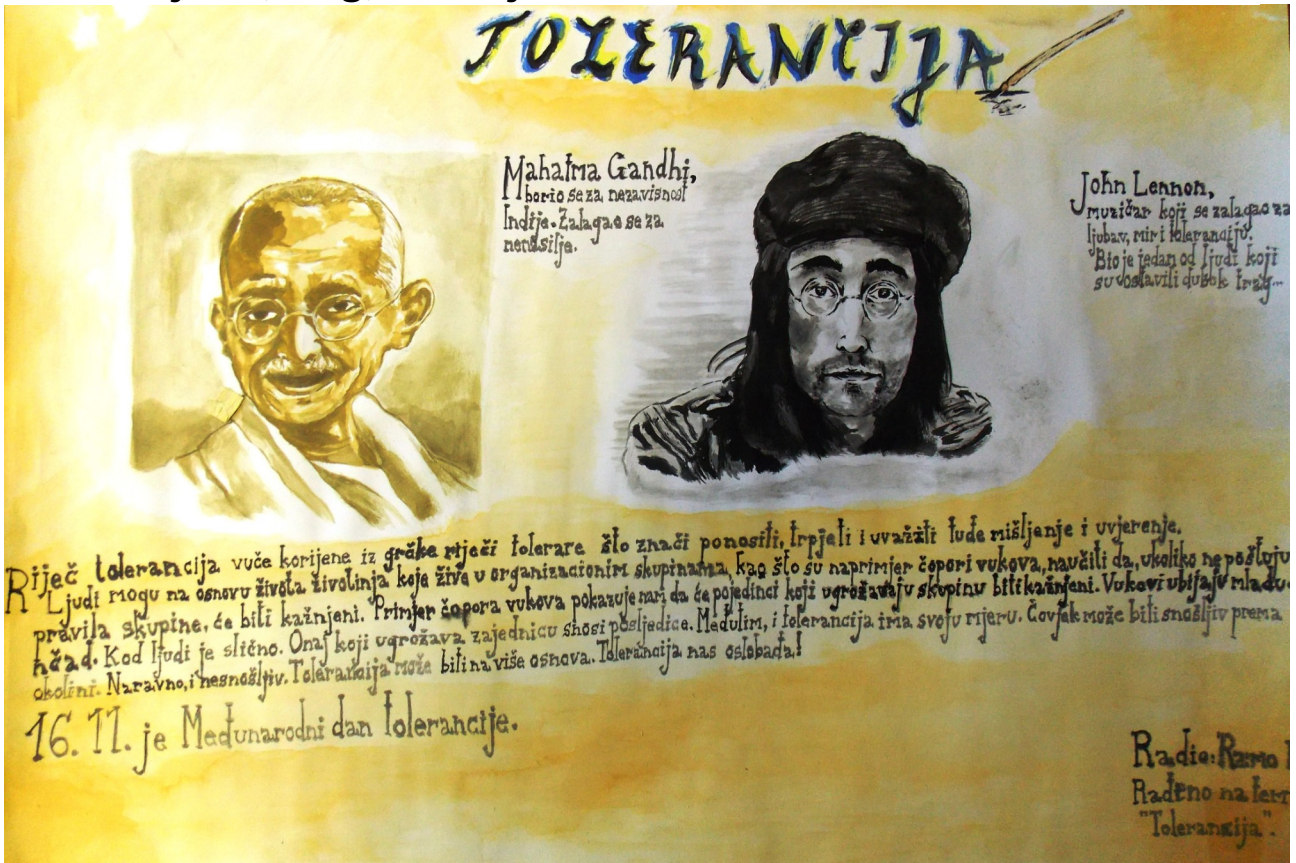 TOLERANCIJA
Mahatma Gandhi,
borio se za nezavisnost
Indije. Zalagao se za
nenasilje.
John Lennon,
muzičar koji se zalagao za
ljubav, mir i toleranciju.
Bio je jedan od ljudi koji
su ostavili dubok trag...
Riječ tolerancija vuče korijene iz grčke riječi tolerare što znači ponositi, trpjeti i uvažiti tuđe mišljenje i uvjerenje.
Ljudi mogu na osnovu života životinja koje žive u organizacionim skupinama, kao što su naprimjer čopori vukova, naučiti da, ukoliko ne poštuju
pravila skupine, će biti kažnjeni. Primjer čopora vukova pokazuje nam da će pojedinci koji ugrožavaju skupinu biti kažnjeni. Vukovi ubijaju mladu-
nčad. Kod ljudi je slično. Onaj koji ugrožava zajednicu snosi posljedice. Međutim, i tolerancija ima svoju mjeru. Čovjek može biti snošljiv prema
okolini. Naravno, i nesnošljiv. Tolerancija može biti na više osnova. Tolerancija nas oslobađa!
16. 11. je Međunarodni dan tolerancije.
Radio: Ramo
Rađeno na
"Tolerancija".